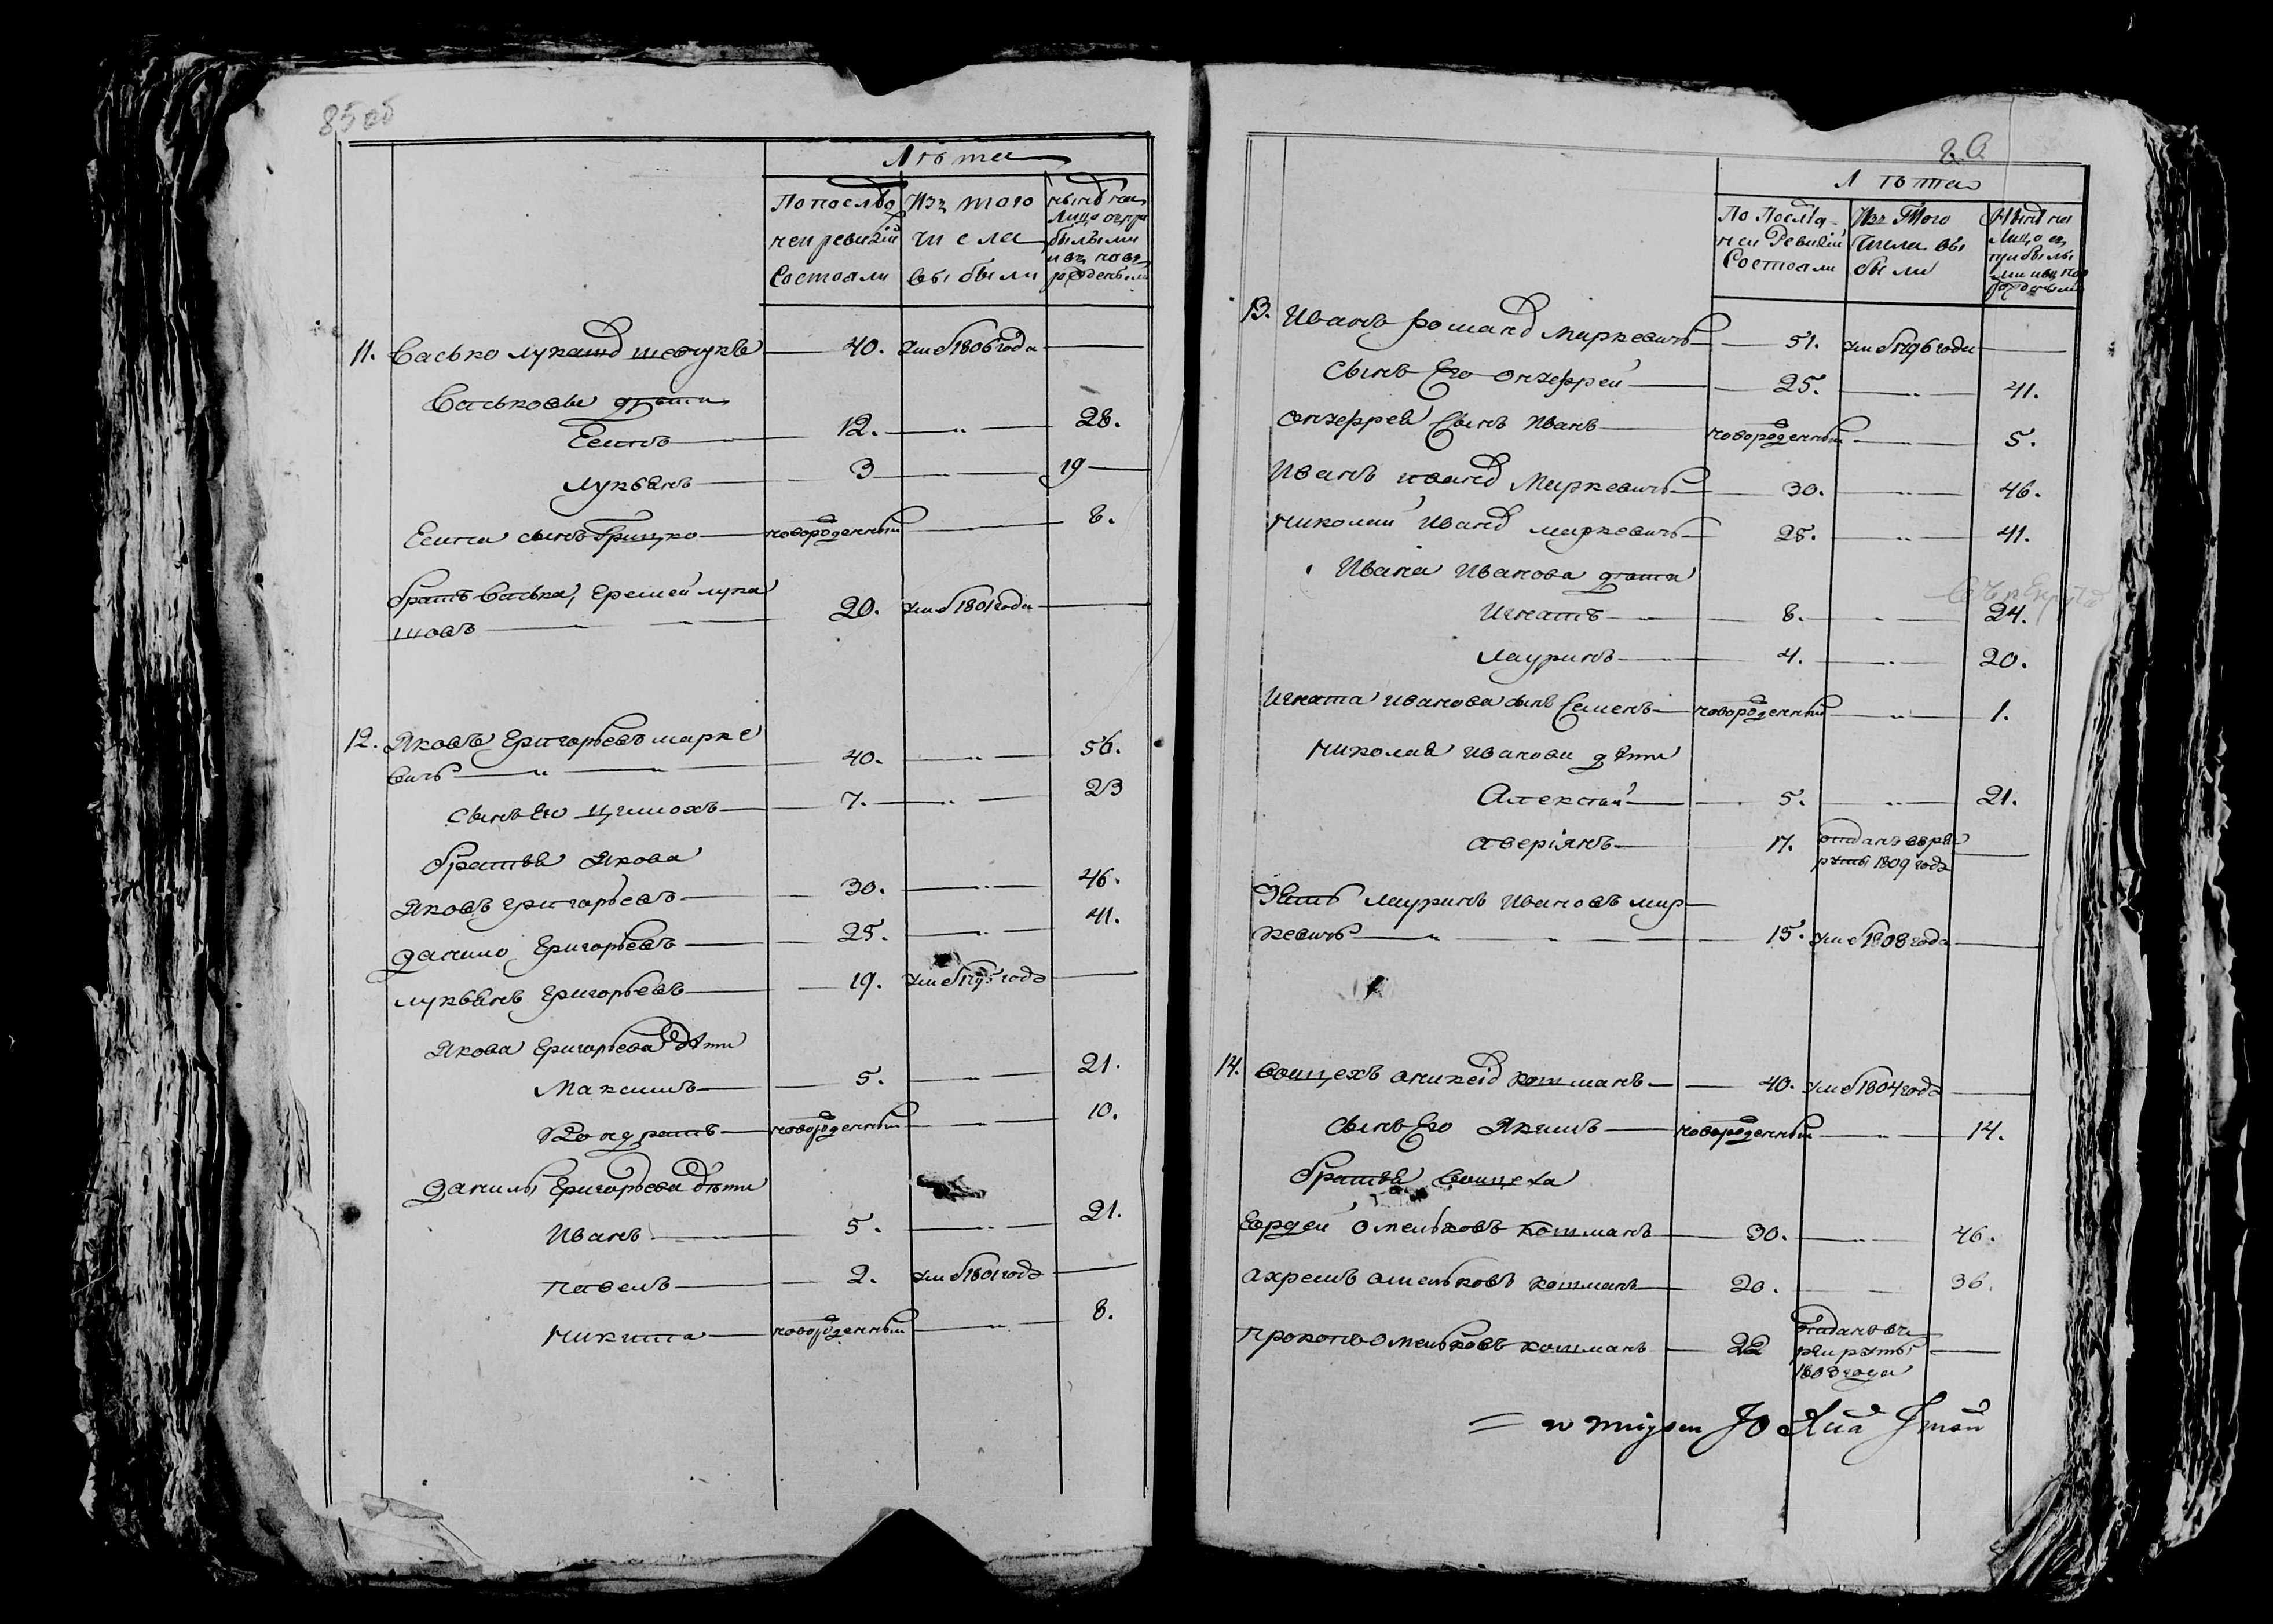 85 об
Лѣта
По послѣд Изъ того нынѣ на
ней ревизіи числа лицо съ при
состояли выбыли былыми
и въ ново
рожденыли
11. Васько лукашов шевчукъ 40. Умеъ 1806 года
Васьковы дѣти
Есипъ 12. 28.
Лукьянъ 3 19
Есипа сынъ Грицко новорожденный 8.
братъ Васька, Еремей лука
шовъ 20. Умеъ 1801 года
12. Яковъ Григорьевъ марке
вичъ 40. 56.
сынъ Его Цимохъ 7. 23
братья Якова
Яковъ григорьевъ 30. 46.
Данило Григорьевъ 25. 41.
лукьянъ григорьевъ 19. Умеъ 1795 года
Якова Григорьева дѣти
Максимъ 5. 21.
Кондратъ новорожденный 10.
Данилы Григорьева дѣти
Иванъ 5. 21.
павелъ 2. Умеъ 1801 года
никита новорожденный 8.
86
Лѣта
По послѣд Изъ того Нынѣ на
ней Ревизіи числа вы лицо съ
Состояли были прибылы
ми и въ ново
рожденыли
13. Иванъ романов Маркевичъ 51. Умеъ 1796 года
сынъ Его Онуфрей 25. 41.
Онуфрея Сынъ Иванъ новорожденный 5.
Иванъ иванов Маркевичъ 30. 46.
николай Иванов маркевичъ 25. 41.
Ивана Иванова дѣти
Игнатъ 8. 24.
Лауринъ 4. 20.
Игната иванова сынъ Семенъ новорожденный 1.
николая иванова дѣти
Алексѣй 5. 21.
аверіянъ 17. отданъ въ рек
руты 1809 года
Зять Лауринъ Ивановъ мар
кевичъ 15. Умеъ 1808 года
14. Войцехъ Кошманъ 40. Умеъ 1804 года
сынъ Его Якимъ новорожденный 14.
братья Войцеха
Гордей Омельковъ кошманъ 30. 46.
ахремъ омельковъ кошманъ 20. 36.
прокопъ Омельковъ кошманъ 22 отданъ въ
рекруты
1803 года